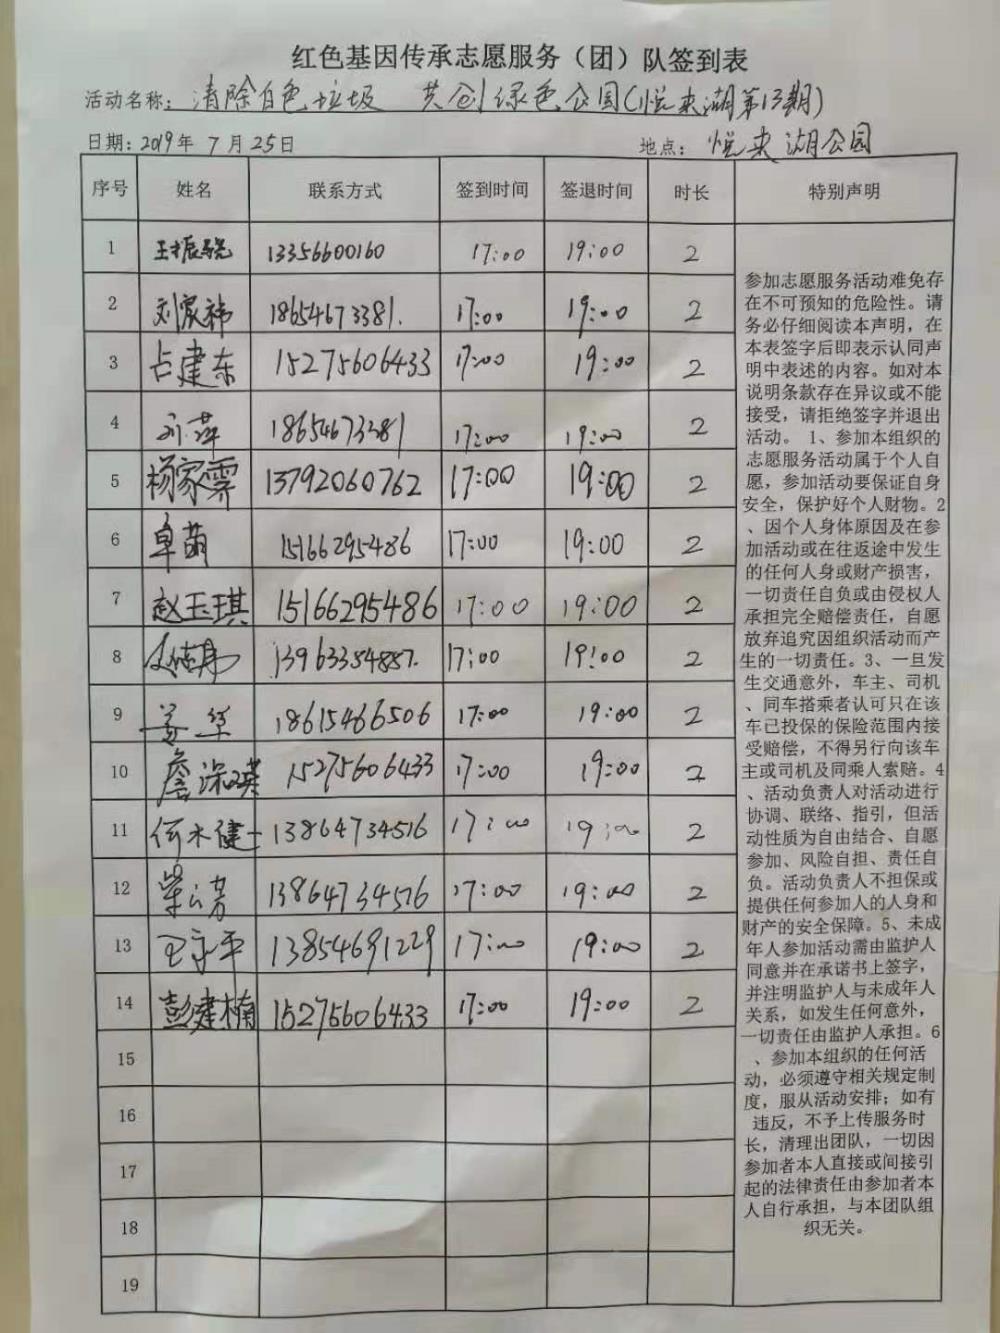 红色基因传承志愿服务（团）队签到表
活动名称：清除白色垃圾 共创绿色公园(悦来湖第13期)
日期：2019年7月25日 地点：悦来湖公园
序号 姓名 联系方式 签到时间 签退时间 时长 特别声明
1 王振骁 13356600160 17:00 19:00 2
2 刘家祎 18654673381. 17:00 19:00 2
3 占建东 15275606433 17:00 19:00 2
4 刘萍 18654673381 17:00 19:00 2
5 杨家霁 13792060762 17:00 19:00 2
6 卓萌 15166295486 17:00 19:00 2
7 赵玉琪 15166295486 17:00 19:00 2
8 13963354887. 17:00 19:00 2
9 姜华 18615466506 17:00 19:00 2
10 詹深琪 15275606433 17:00 19:00 2
11 何木健 13864734516 17:00 19:00 2
12 柴云芳 13864734516 17:00 19:00 2
13 王永平 13854691229 17:00 19:00 2
14 彭建楠 15275606433 17:00 19:00 2
15
16
17
18
19
参加志愿服务活动难免存
在不可预知的危险性。请
务必仔细阅读本声明，在
本表签字后即表示认同声
明中表述的内容。如对本
说明条款存在异议或不能
接受，请拒绝签字并退出
活动。 1、参加本组织的
志愿服务活动属于个人自
愿，参加活动要保证自身
安全，保护好个人财物。2
、因个人身体原因及在参
加活动或在往返途中发生
的任何人身或财产损害，
一切责任自负或由侵权人
承担完全赔偿责任，自愿
放弃追究因组织活动而产
生的一切责任。3、一旦发
生交通意外，车主、司机
、同车搭乘者认可只在该
车已投保的保险范围内接
受赔偿，不得另行向该车
主或司机及同乘人索赔。4
、活动负责人对活动进行
协调、联络、指引，但活
动性质为自由结合、自愿
参加、风险自担、责任自
负。活动负责人不担保或
提供任何参加人的人身和
财产的安全保障。5、未成
年人参加活动需由监护人
同意并在承诺书上签字，
并注明监护人与未成年人
关系，如发生任何意外，
一切责任由监护人承担。6
、参加本组织的任何活
动，必须遵守相关规定制
度，服从活动安排；如有
违反，不予上传服务时
长，清理出团队，一切因
参加者本人直接或间接引
起的法律责任由参加者本
人自行承担，与本团队组
织无关。